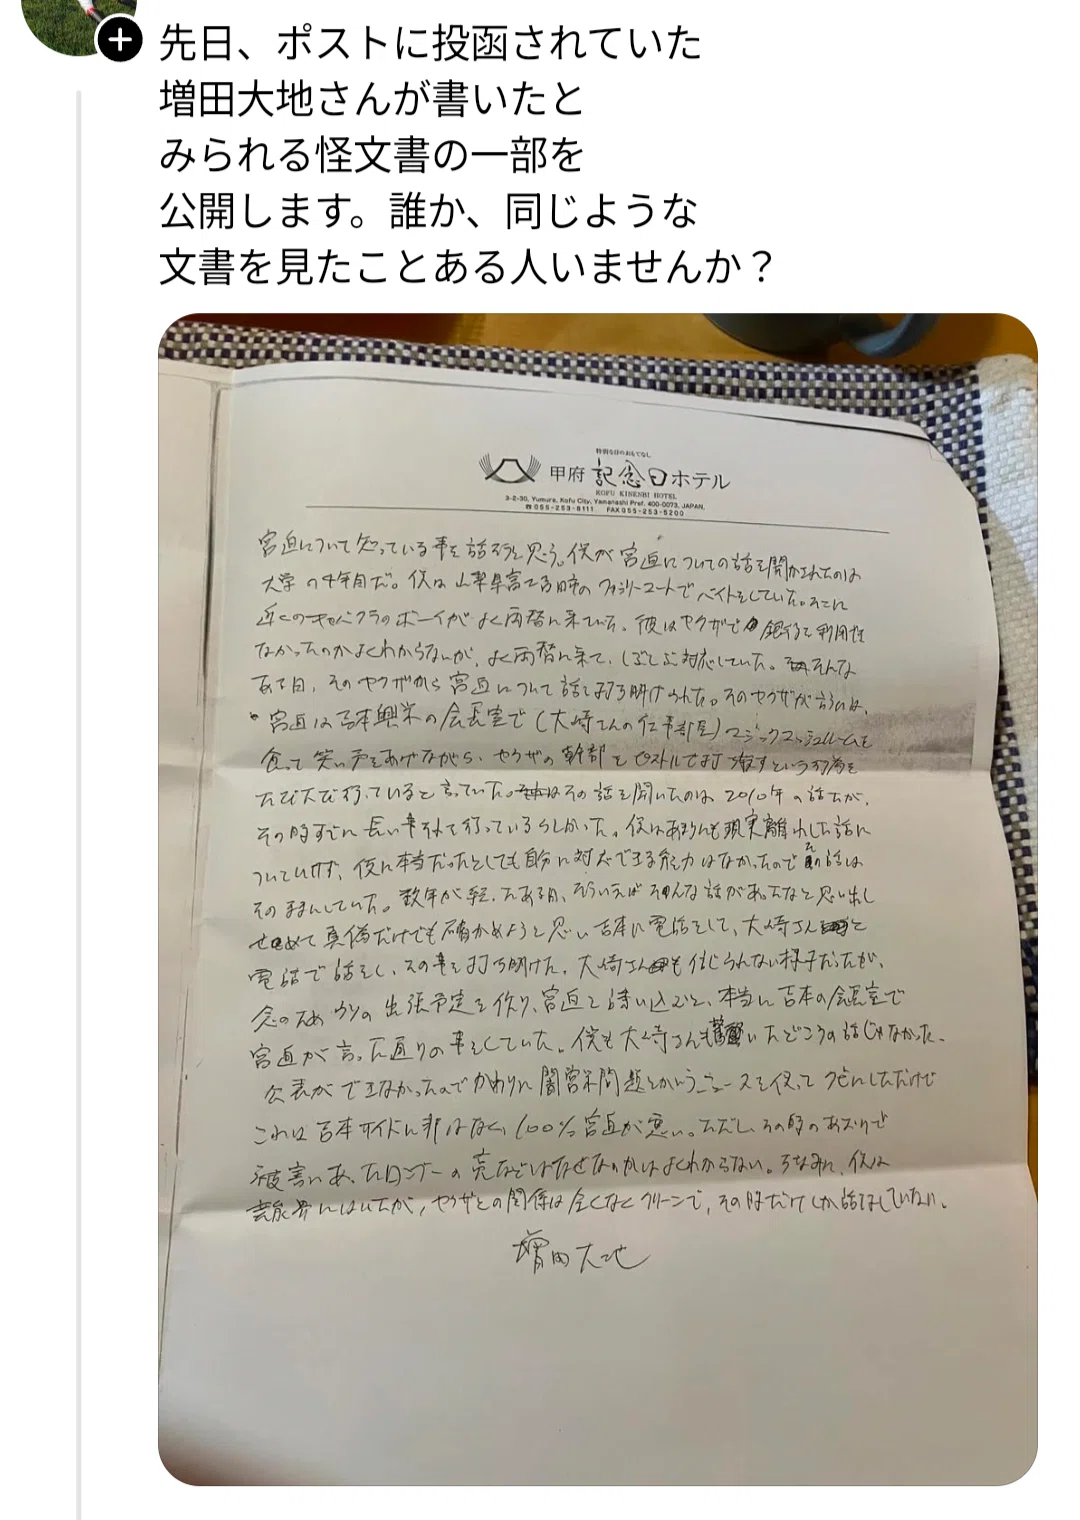 先日、ポストに投函されていた
増田大地さんが書いたと
みられる怪文書の一部を
公開します。誰か、同じような
文書を見たことある人いませんか？
特別な日のおもてなし
甲府 記念日ホテル
KOFU KINENBI HOTEL
3-2-30, Yumura, Kofu City, Yamanashi Pref. 400-0073, JAPAN.
☎055-253-6111 FAX055-253-5200
宮迫について知っている事を話そうと思う。僕が宮迫についての話を聞かされたのは
大学の4年目だ。僕は山梨県富士吉田のファミリーマートでバイトをしていた。そこに
近くのキャバクラのボーイがよく両替に来ていた。彼はヤクザで銀行を利用性
なかったのかよくわからないが、よく両替に来て、しぶしぶ対応していた。そんな
ある日、そのヤクザから宮迫について話を打ち明けられた。そのヤクザが言うには、
宮迫は吉本興業の会長室で(大崎さんの仕事部屋)マジックマッシュルームを
食って笑い声をあげながら、ヤクザの幹部をピストルで打ち殺すという行為を
たびたび行っていると言っていた。その話を聞いたのは2010年の話だが、
その時すでに長い事それを行っているらしかった。僕はあまりにも現実離れした話に
ついていけず、仮に本当だったとしても自分に対応できる能力はなかったのでその話は
そのままにしていた。数年が経ったある日、そういえばそんな話があったなと思い出し
せめて真偽だけでも確かめようと思い吉本に電話をして、大崎さんと
電話で話をし、その事を打ち明けた。大崎さんも信じられない様子だったが、
念のためウソの出張予定を作り、宮迫を誘い込むと、本当に吉本の会長室で
宮迫が言った通りの事をしていた。僕も大崎さんも驚いたどころの話じゃなかった。
公表ができなかったのでかわりに闇営業問題とかいうニュースを使ってクビにしただけで
これは吉本サイドに非はなく、100%宮迫が悪い。ただし、その時のあおりで
被害にあったロンブーの亮などはなぜなのかはよくわからない。ちなみに、僕は
芸能界にはいたが、ヤクザとの関係は全くなくクリーンで、その時だけしか話はしていない。
増田大地